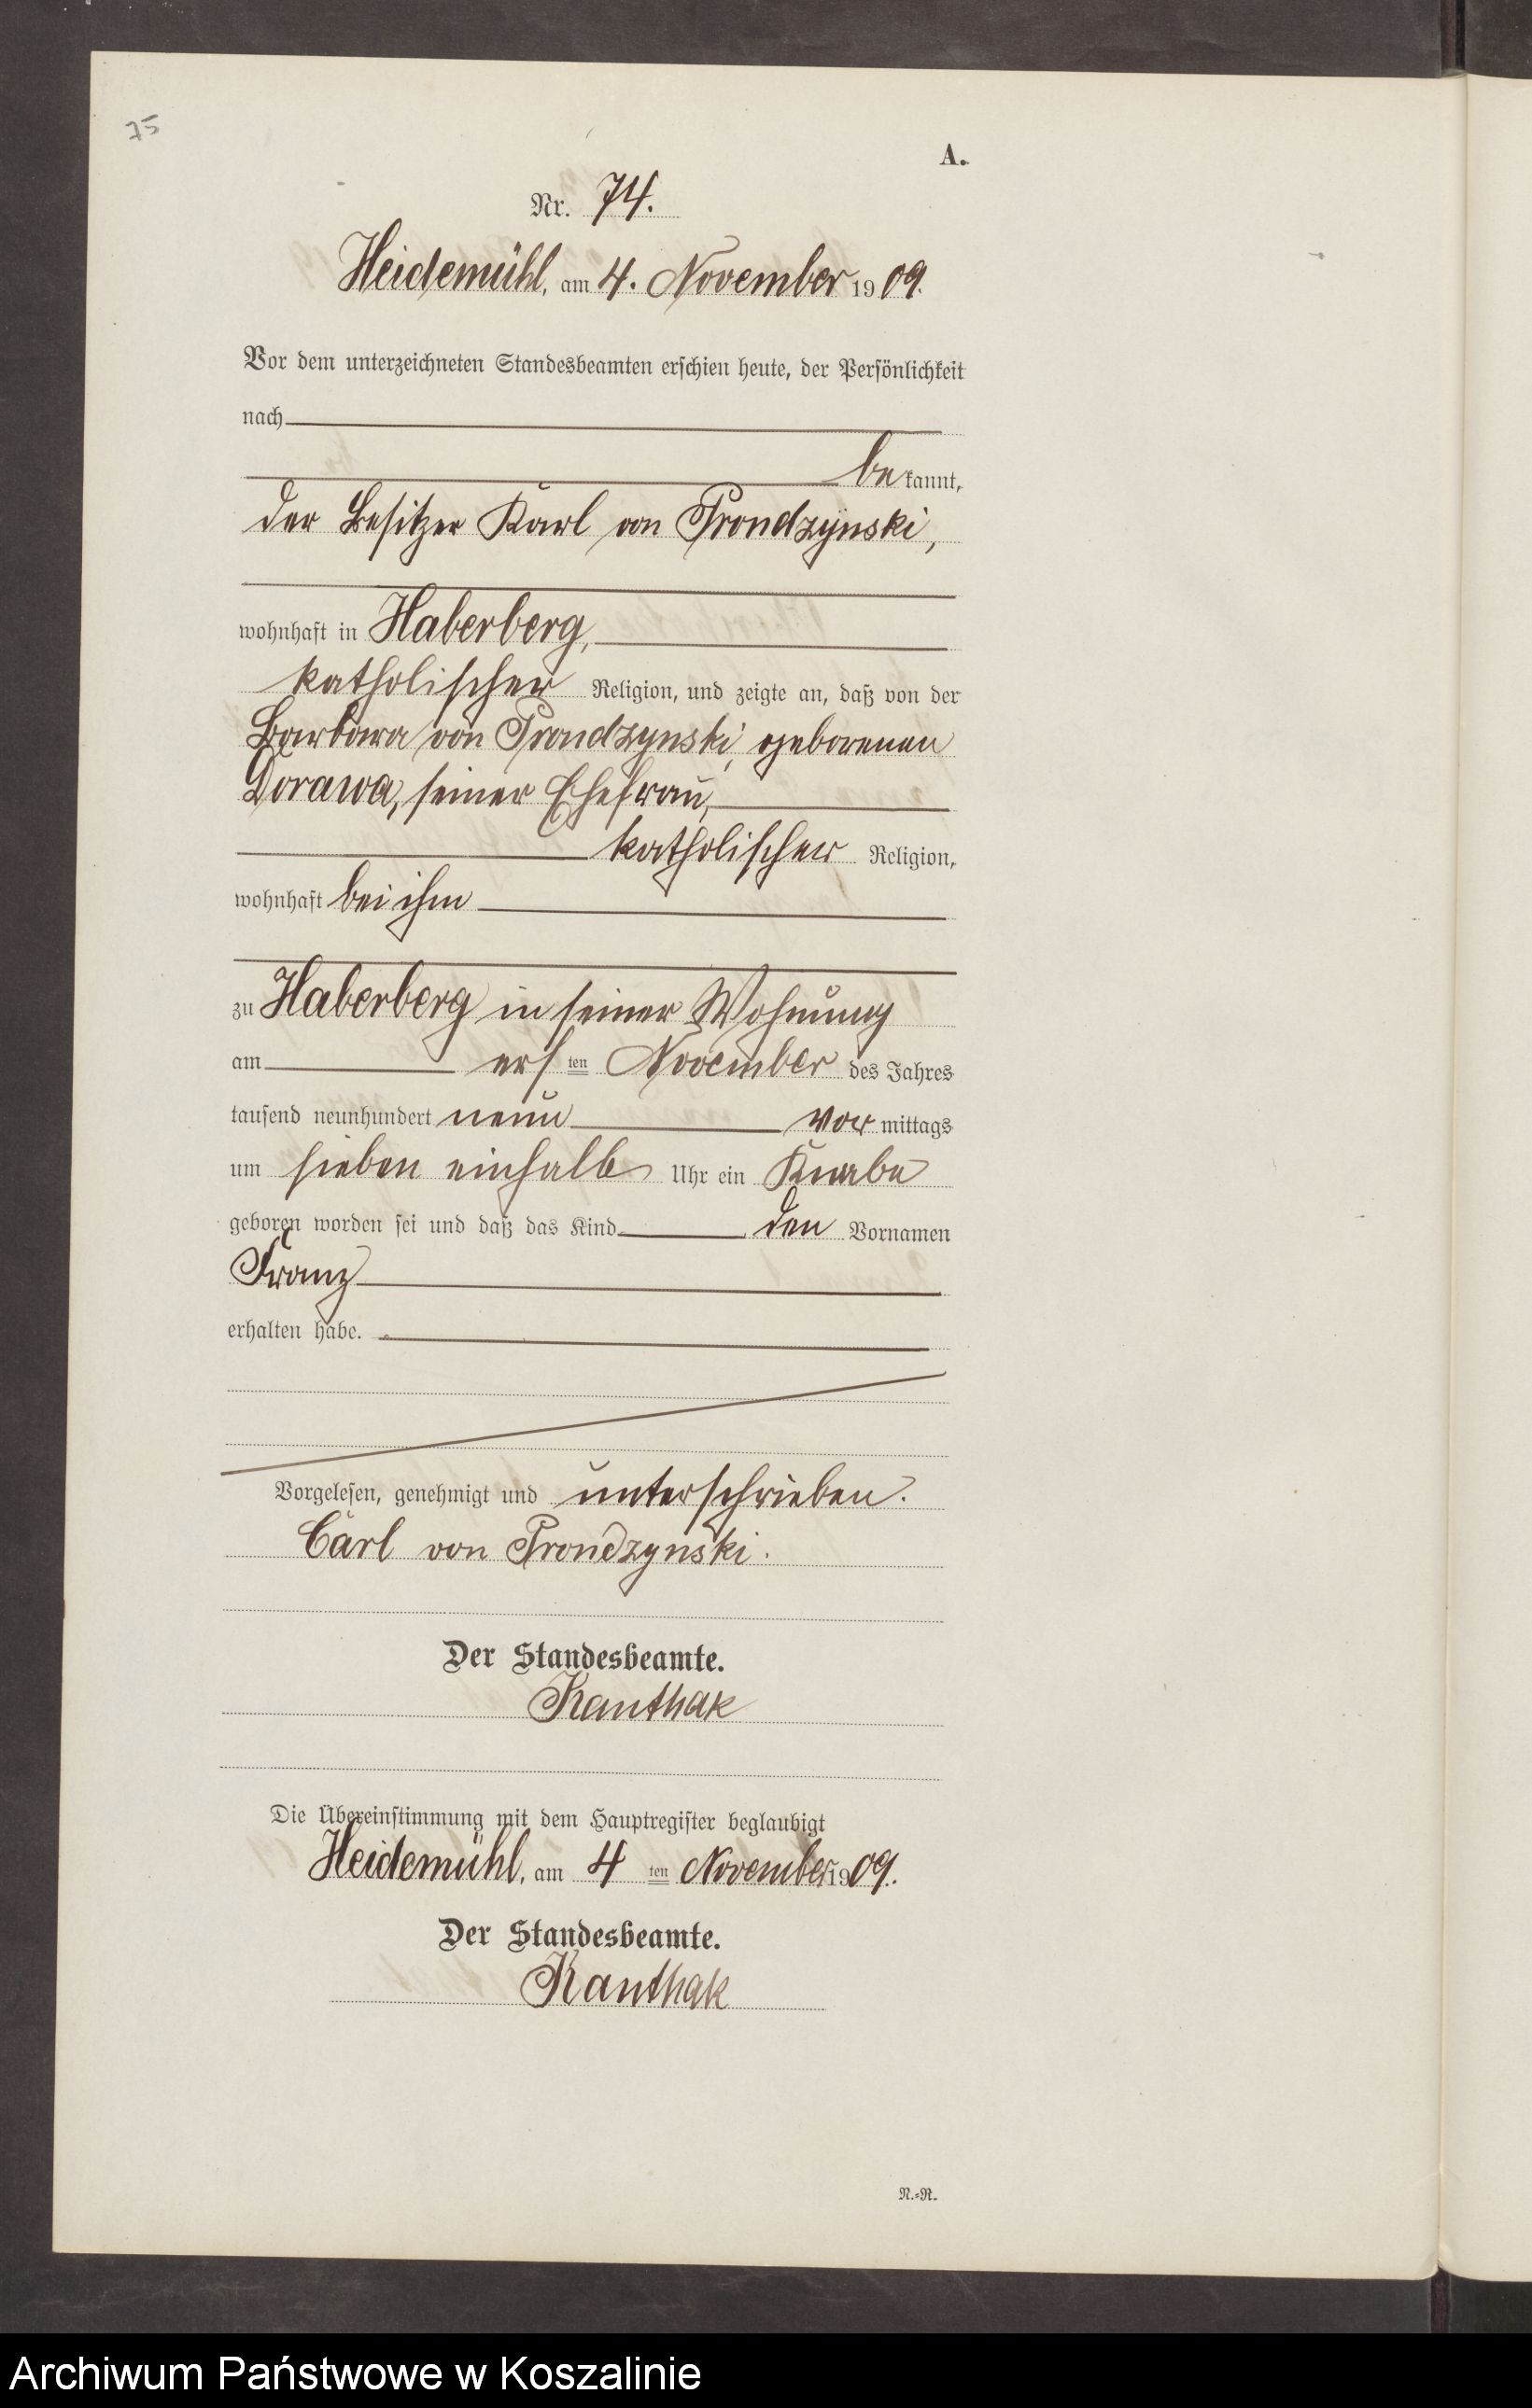 75
A.
Nr. 74.
Heidemühl, am 4. November 1909.
Vor dem unterzeichneten Standesbeamten erschien heute, der Persönlichkeit
nach
bekannt,
der Besitzer Karl von Prondzynski,
wohnhaft in Haberberg,
katholischer Religion, und zeigte an, daß von der
Barbara von Prondzynski, geborenen
Dorawa, seiner Ehefrau,
katholischer Religion,
wohnhaft bei ihm
zu Haberberg in seiner Wohnung
am ersten November des Jahres
tausend neunhundert neun vormittags
um sieben einhalb Uhr ein Knabe
geboren worden sei und daß das Kind den Vornamen
Franz
erhalten habe.
Vorgelesen, genehmigt und unterschrieben.
Carl von Prondzynski.
Der Standesbeamte.
Kanthak
Die Übereinstimmung mit dem Hauptregister beglaubigt
Heidemühl, am 4ten November 1909.
Der Standesbeamte.
Kanthak
N.=R.
Archiwum Państwowe w Koszalinie